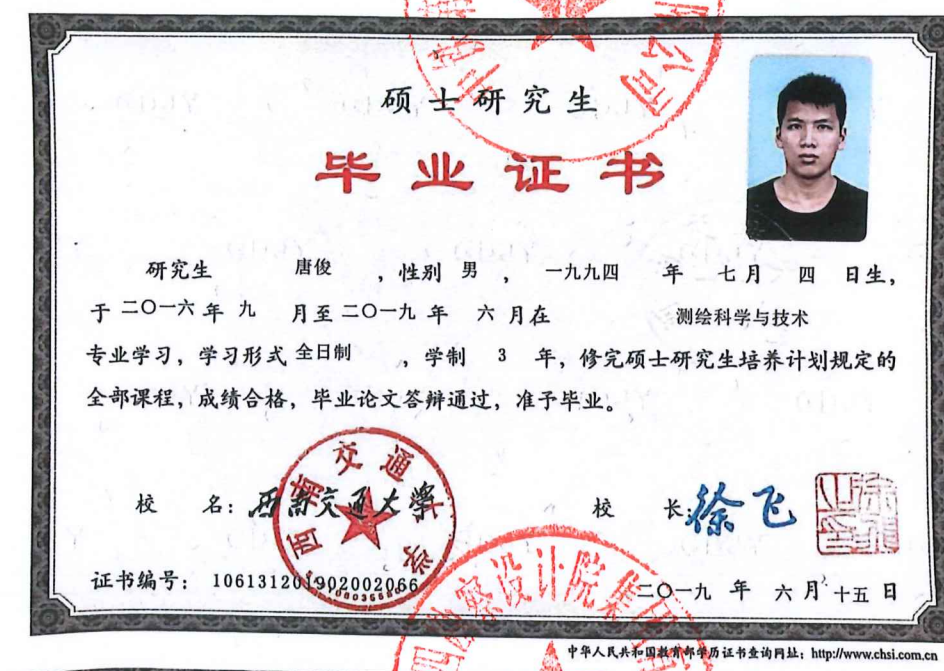 硕士研究生
毕业证书
研究生 唐俊 ，性别 男 ， 一九九四 年 七月 四 日生，
于 二〇一六 年 九 月至 二〇一九 年 六 月在 测绘科学与技术
专业学习，学习形式 全日制 ，学制 3 年，修完硕士研究生培养计划规定的
全部课程，成绩合格，毕业论文答辩通过，准予毕业。
西南交通大学
校 名：西南交通大学 校 长：徐飞
证书编号： 106131201902002066 二〇一九 年 六 月 十五 日
察设计院集团
中华人民共和国教育部学历证书查询网址：http://www.chsi.com.cn